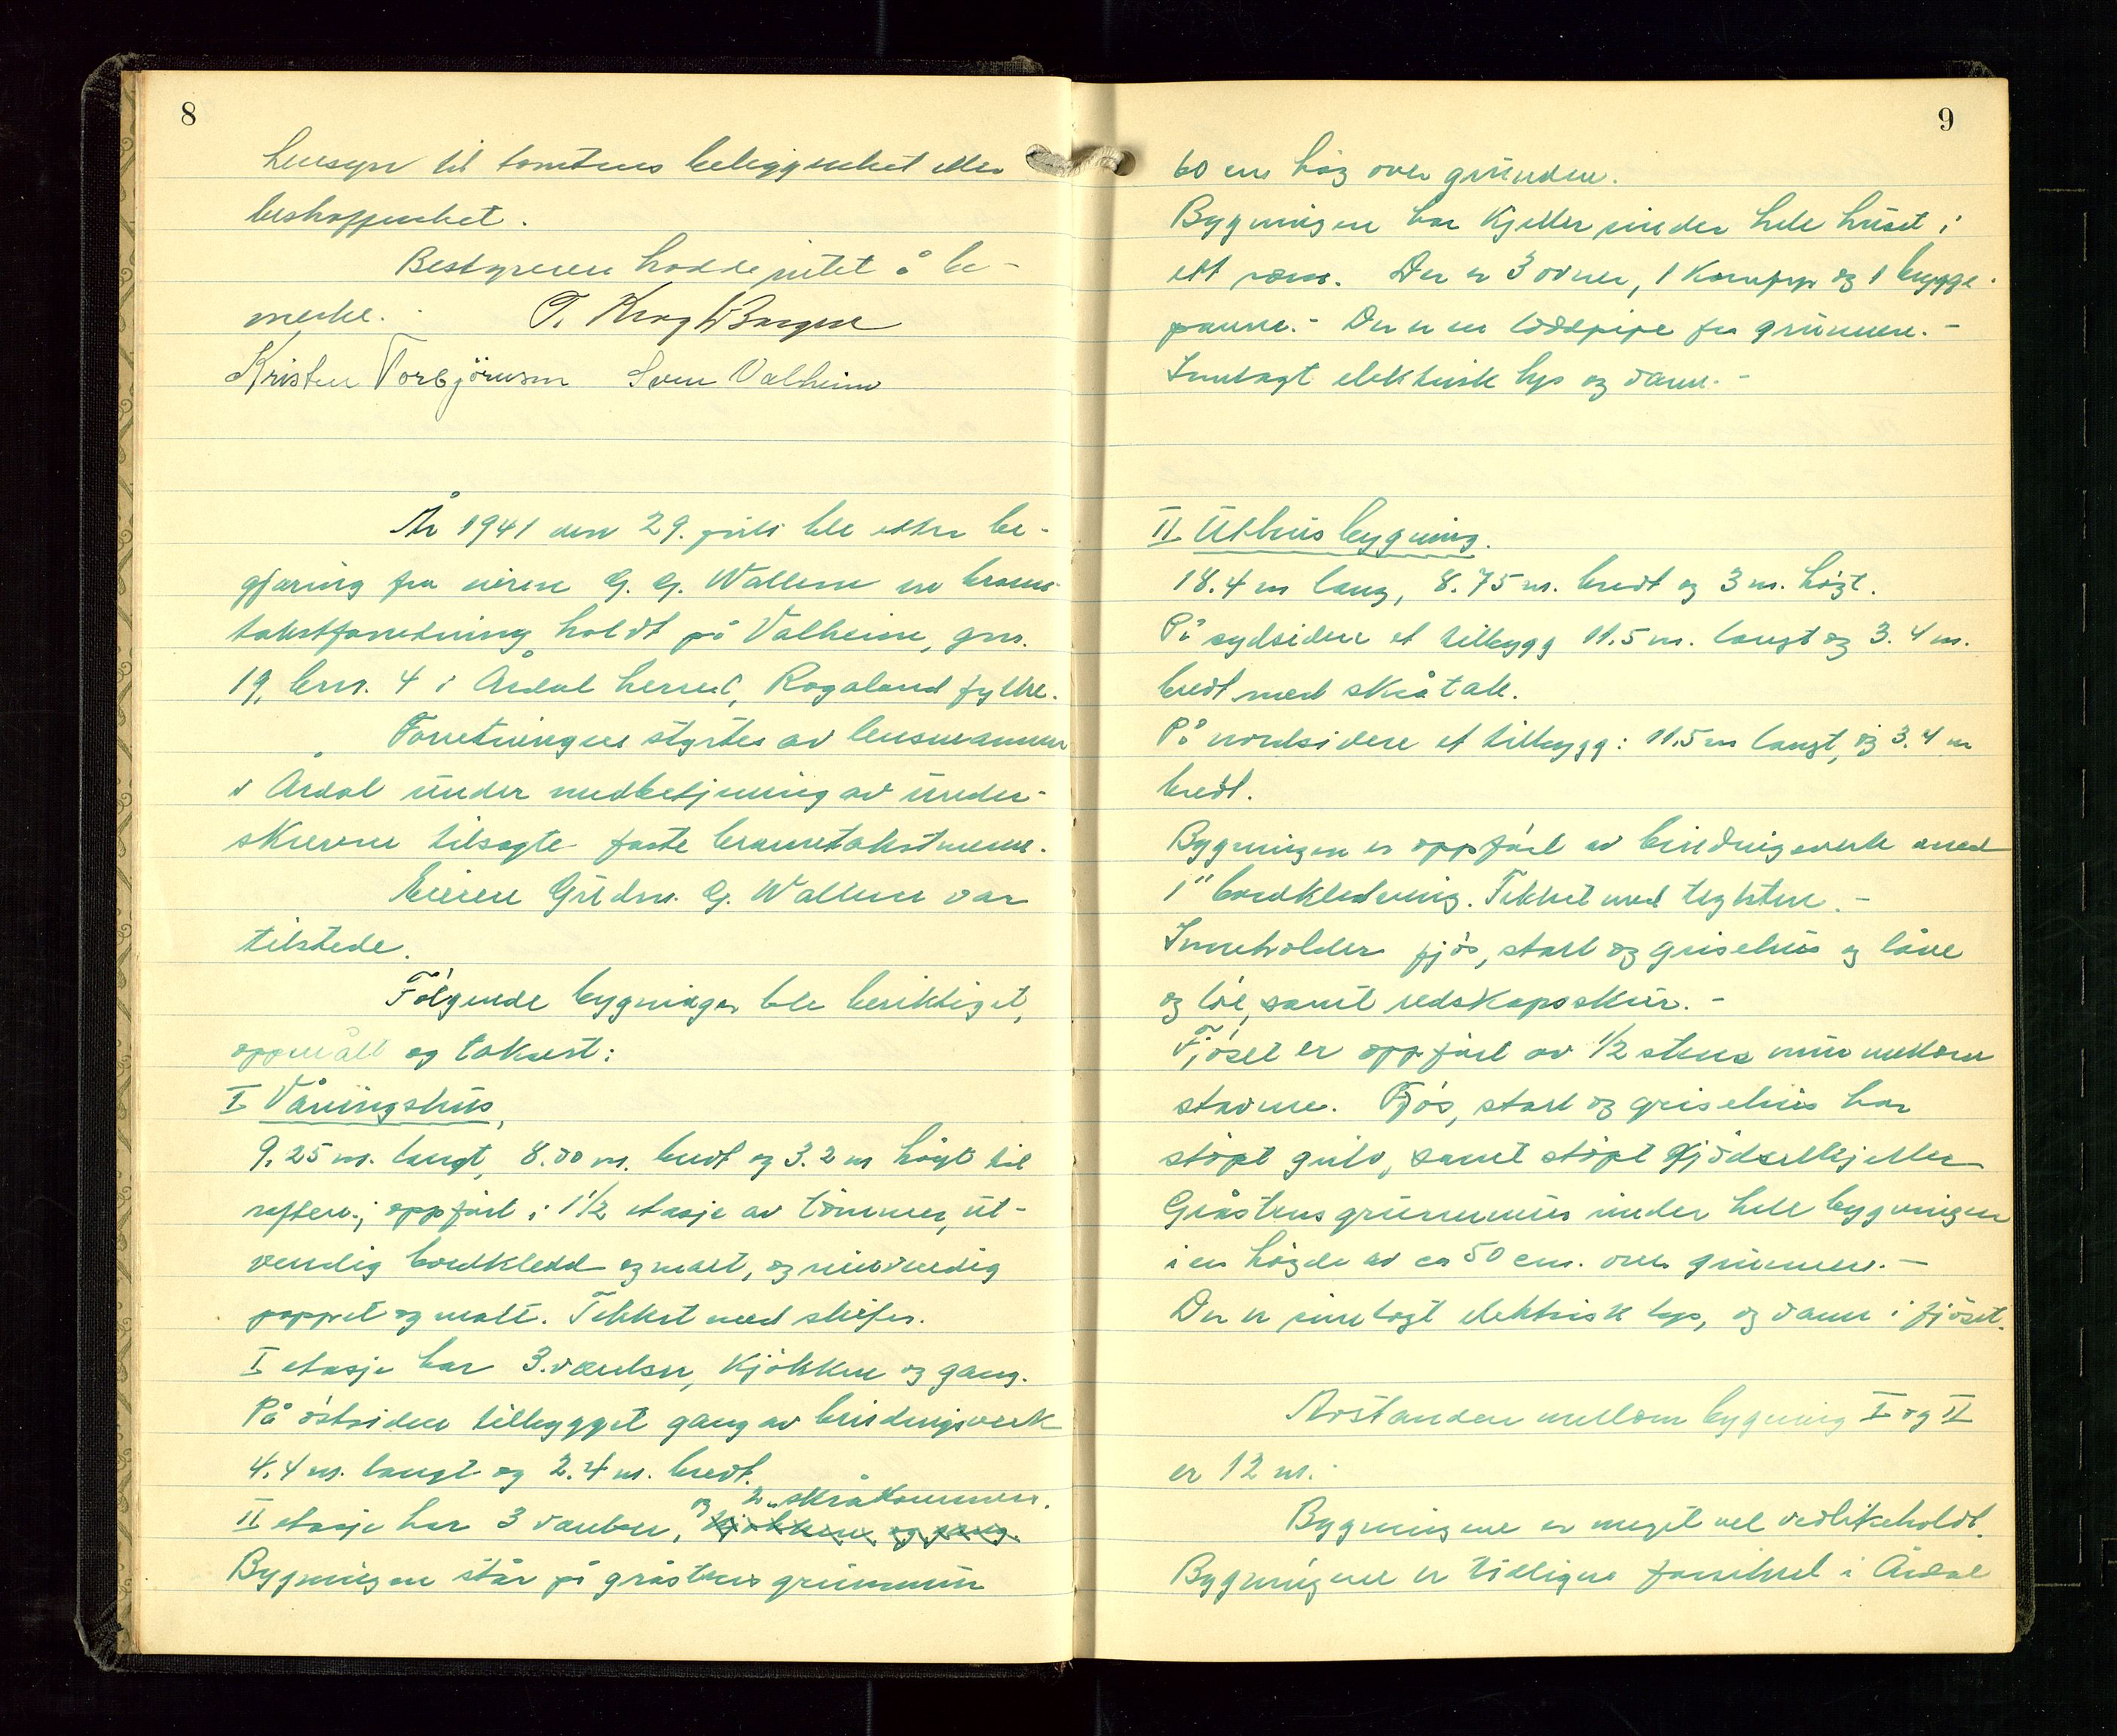 8
hensyn til tomtens beliggenhet eller
beskaffenhet.
Bestyreren hadde intet å be-
merke. T. Krag
Kristen Torbjörnsen Sven Valheim
År 1941 den 29. juli ble etter be-
gjæring fra eieren G. G. Wallem en brann-
takstforretning holdt på Valheim, gnr.
19, bnr. 4 i Årdal herred, Rogaland fylke.
Forretningen styrtes av lensmannen
i Årdal under medbetjening av under-
skrevne tilsagte faste branntakstmenn.
Eieren Gudm. G. Wallem var
tilstede.
Følgende bygninger ble besiktiget,
oppmålt og taksert:
I Våningshus,
9.25 m. langt, 8.00 m. bredt og 3.2 m höyt til
raftene; oppført i 1 1/2 etasje av tömmer, ut-
vendig bordkledd og malt, og innvendig
pappet og malt. Tekket med skifer.
I etasje har 3 værelser, kjökken og gang.
På östsiden tilbygget gang av bindingsverk
4.4 m. langt og 2.4 m. bredt.
og 2 skråkammers.
II etasje har 3 værelser, kjökken og gang.
Bygningen står på gråstens grunnmur
9
60 cm hög over grunden.
Bygningen har kjeller under hele huset i
ett rom. Der er 3 ovner, 1 komfyr og 1 brygge-
panne.- Der er en loddpipe fra grunnen.-
Innlagt elektrisk lys og vann.-
II Uthusbygning.
18.4 m lang, 8.75 m. bredt og 3 m. høgt.
På sydsiden et tilbygg 11.5 m. langt og 3.4 m.
bredt med skråtak.
På nordsiden et tilbygg: 11.5 m langt, og 3.4 m
bredt.
Bygningen er oppført av bindingsverk med
1" bordkledning. Tekket med teglsten.-
Inneholder fjös, stall og grisehus og låve
og löe, samt redskapsskur.-
Fjöset er oppført av 1/2 stens mur mellom
stavene. Fjös, stall og grisehus har
stöpt gulv, samt stöpt gjödselkjeller
Gråstens grunnmur under hele bygningen
i en høgde av ca 50 cm. over grunnen.-
Der er innlagt elektrisk lys, og vann i fjöset.
Avstanden mellom bygning I og II
er 12 m.
Bygningene er meget vel vedlikeholdt.
Bygningene er tidligere forsikret i Årdal